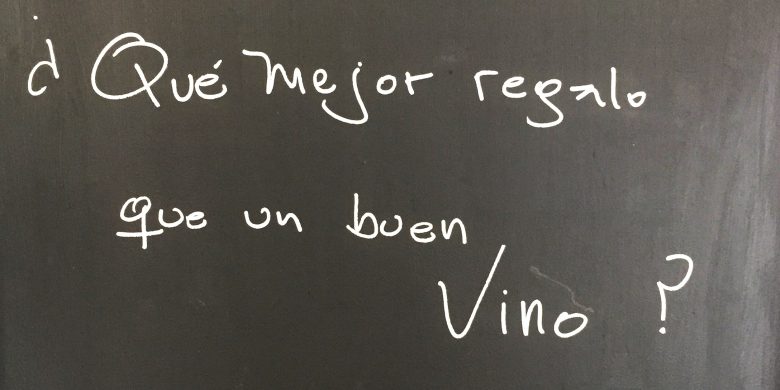 ¿Qué mejor regalo
que un buen
Vino?